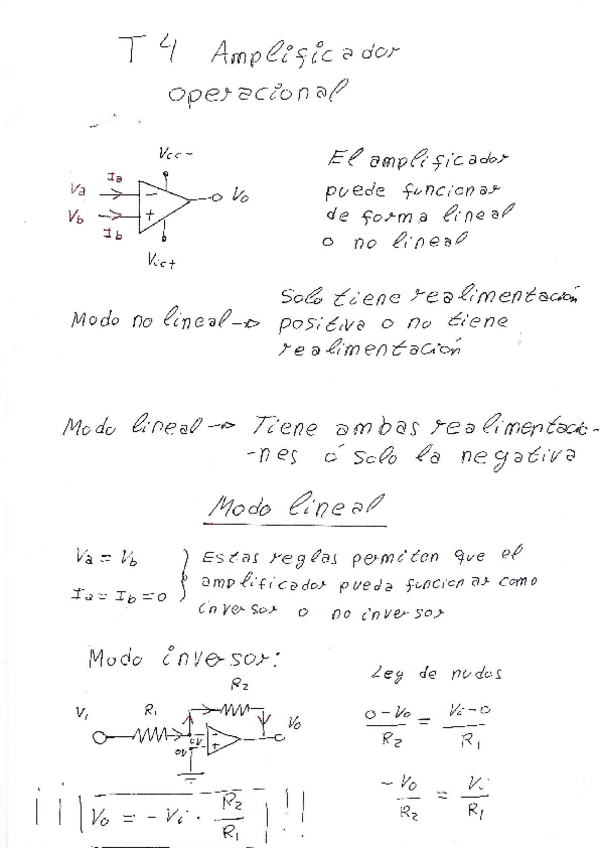 T4 Amplificador
operacional
Vcc-
Va Ia - Vo
Vb Ib +
Vcc+
El amplificador
puede funcionar
de forma lineal
o no lineal
Modo no lineal → Solo tiene realimentación
positiva o no tiene
realimentación
Modo lineal → Tiene ambas realimentacio-
-nes ó solo la negativa
Modo lineal
Va = Vb
Ia = Ib = 0
} Estas reglas permiten que el
amplificador pueda funcionar como
inversor o no inversor
Modo inversor:
R2
V1 R1 0V - Vo
0V +
Ley de nudos
0-Vo / R2 = Vi-0 / R1
-Vo / R2 = Vi / R1
¡¡ Vo = -Vi · R2 / R1 !!